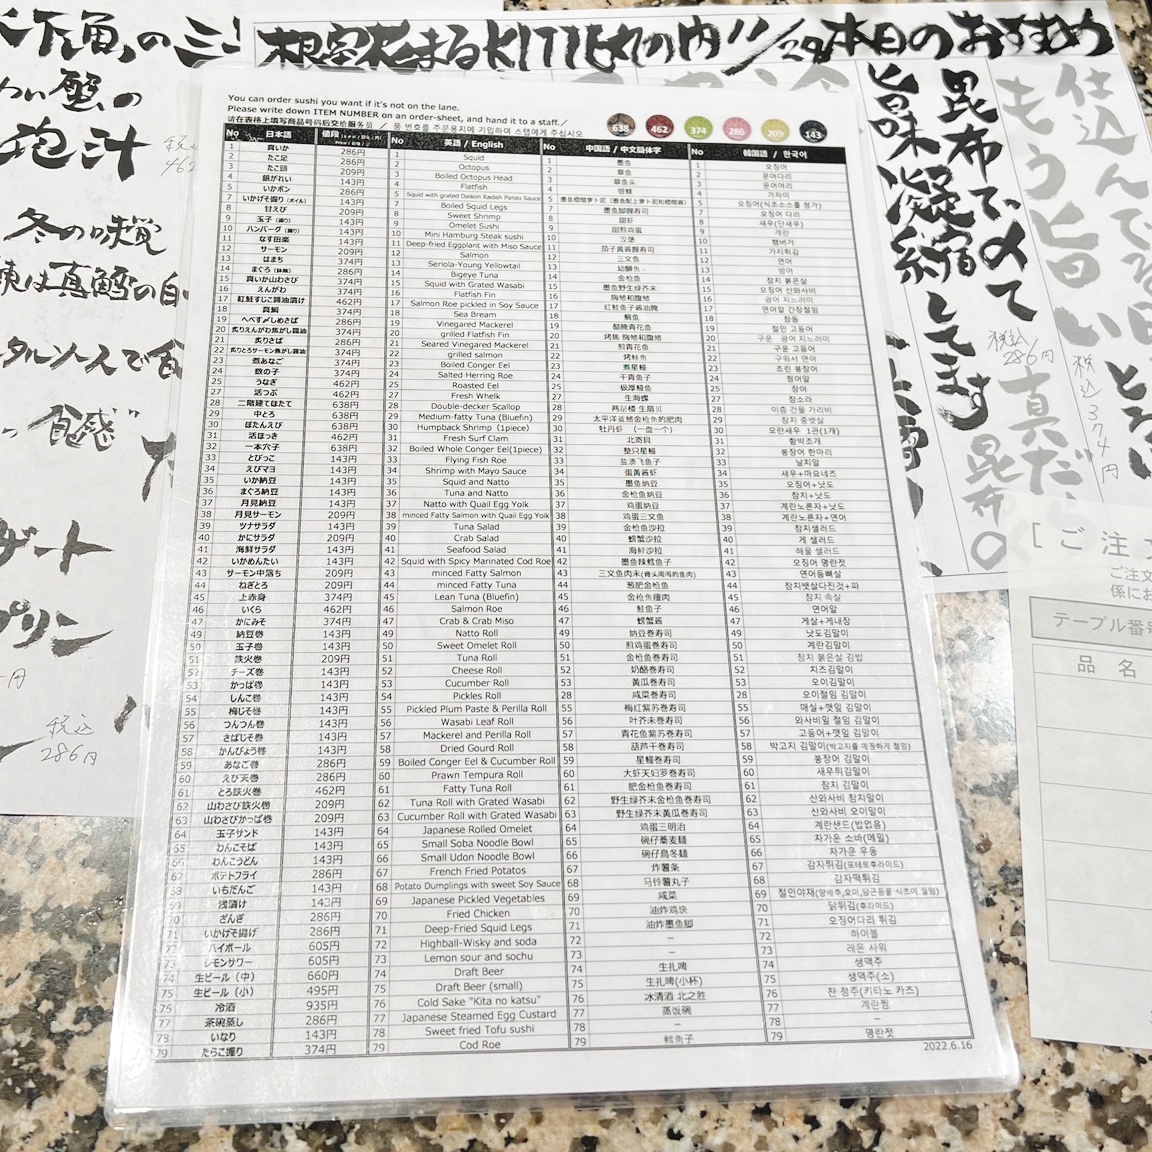 根室花まるKITTE丸の内 1/29 本日のおすすめ
昆布で〆て
旨味凝縮してます
税込
286円
税込374円
冬の味覚
税込
286円
[ご注文
テーブル番号
品 名
You can order sushi you want if it's not on the lane.
Please write down ITEM NUMBER on an order-sheet, and hand it to a staff./
请在表格上填写商品号码后交给服务员 / 품 번호를 주문용지에 기입하여 스탭에게 주십시오
638 462 374 286 209 143
No 日本語 値段 No 英語 / English No 中国語 / 中文簡体字 No 韓国語 / 한국어
1 真いか 286円 1 Squid 1 墨鱼 1 오징어
2 たこ足 286円 2 Octopus 2 章鱼 2 문어다리
3 たこ頭 209円 3 Boiled Octopus Head 3 章鱼头 3 문어머리
4 銀がれい 143円 4 Flatfish 4 银鲽 4 가자미
5 いかポン 286円 5 Squid with grated Daikon Radish Ponzu Sauce 5 5
7 いかげそ握り(ボイル) 143円 7 Boiled Squid Legs 7 墨鱼脚握寿司 7 오징어 다리
8 甘えび 209円 8 Sweet Shrimp 8 甜虾 8 새우(단새우)
9 玉子(握り) 143円 9 Omelet Sushi 9 甜煎鸡蛋 9 계란
10 ハンバーグ(握り) 143円 10 Mini Hamburg Steak sushi 10 汉堡 10 햄버거
11 なす田楽 143円 11 Deep-fried Eggplant with Miso Sauce 11 茄子黄酱握寿司 11 가지튀김
12 サーモン 209円 12 Salmon 12 三文鱼 12 연어
13 はまち 374円 13 Seriola-Young Yellowtail 13 幼鰤鱼 13 방어
14 まぐろ(鉢鮪) 286円 14 Bigeye Tuna 14 金枪鱼 14 참치 붉은살
15 真いか山わさび 374円 15 Squid with grated Wasabi 15 墨鱼野生绿芥末 15 오징어 산와사비
16 えんがわ 374円 16 Flatfish Fin 16 16 광어 지느러미
17 紅鮭すじこ醤油漬け 462円 17 Salmon Roe pickled in Soy Sauce 17 红鲑鱼子酱油腌 17 연어알 간장절임
18 真鯛 374円 18 Sea Bream 18 鲷鱼 18 참돔
19 へべす〆しめさば 286円 19 Vinegared Mackerel 19 醋腌青花鱼 19 절인 고등어
20 炙りえんがわ焦がし醤油 374円 20 grilled Flatfish Fin 20 20 구운 광어 지느러미
21 炙りさば 286円 21 Seared Vinegared Mackerel 21 煎青花鱼 21 구운 고등어
22 炙りとろサーモン焦がし醤油 374円 22 grilled salmon 22 烤鲑鱼 22 구워서 연어
23 煮あなご 374円 23 Boiled Conger Eel 23 煮星鳗 23 조린 붕장어
24 数の子 374円 24 Salted Herring Roe 24 干青鱼子 24 청어알
25 うなぎ 462円 25 Roasted Eel 25 极厚鳗鱼 25 장어
27 活つぶ 462円 27 Fresh Whelk 27 生海螺 27 참소라
28 二階建てほたて 638円 28 Double-decker Scallop 28 两层楼 生扇贝 28 이층 건물 가리비
29 中とろ 638円 29 Medium-fatty Tuna (Bluefin) 29 太平洋蓝鳍金枪鱼的肥肉 29 참치 중뱃살
30 ぼたんえび 638円 30 Humpback Shrimp (1piece) 30 牡丹虾 (一盘一个) 30 모란새우 1관(1개)
31 活ほっき 462円 31 Fresh Surf Clam 31 北寄贝 31 함박조개
32 一本穴子 638円 32 Boiled Whole Conger Eel(1piece) 32 整只星鳗 32 붕장어 한마리
33 とびっこ 143円 33 Flying Fish Roe 33 盐渍飞鱼子 33 날치알
34 えびマヨ 143円 34 Shrimp with Mayo Sauce 34 蛋黄酱虾 34 새우+마요네즈
35 いか納豆 143円 35 Squid and Natto 35 墨鱼纳豆 35 오징어+낫도
36 まぐろ納豆 143円 36 Tuna and Natto 36 金枪鱼纳豆 36 참치+낫도
37 月見納豆 143円 37 Natto with Quail Egg Yolk 37 鸡蛋纳豆 37 계란노른자+낫도
38 月見サーモン 209円 38 minced Fatty Salmon with Quail Egg Yolk 38 鸡蛋三文鱼 38 계란노른자+연어
39 ツナサラダ 143円 39 Tuna Salad 39 金枪鱼沙拉 39 참치샐러드
40 かにサラダ 209円 40 Crab Salad 40 螃蟹沙拉 40 게 샐러드
41 海鮮サラダ 143円 41 Seafood Salad 41 海鲜沙拉 41 해물 샐러드
42 いかめんたい 143円 42 Squid with Spicy Marinated Cod Roe 42 墨鱼辣鳕鱼子 42 오징어 명란젓
43 サーモン中落ち 209円 43 minced Fatty Salmon 43 三文鱼肉末(骨头周围的鱼肉) 43 연어등뼈살
44 ねぎとろ 209円 44 minced Fatty Tuna 44 葱肥金枪鱼 44 참치뱃살다진것+파
45 上赤身 374円 45 Lean Tuna (Bluefin) 45 金枪鱼瘦肉 45 참치 속살
46 いくら 462円 46 Salmon Roe 46 鲑鱼子 46 연어알
47 かにみそ 374円 47 Crab & Crab Miso 47 螃蟹酱 47 게살+게내장
49 納豆巻 143円 49 Natto Roll 49 纳豆卷寿司 49 낫도김말이
50 玉子巻 143円 50 Sweet Omelet Roll 50 煎鸡蛋卷寿司 50 계란김말이
51 鉄火巻 209円 51 Tuna Roll 51 金枪鱼卷寿司 51 참치 붉은살 김밥
52 チーズ巻 143円 52 Cheese Roll 52 奶酪卷寿司 52 치즈김말이
53 かっぱ巻 143円 53 Cucumber Roll 53 黄瓜卷寿司 53 오이김말이
54 しんこ巻 143円 54 Pickles Roll 28 咸菜卷寿司 28 오이절임 김말이
55 梅じそ巻 143円 55 Pickled Plum Paste & Perilla Roll 55 梅红紫苏卷寿司 55 매실+깻잎 김말이
56 つんつん巻 143円 56 Wasabi Leaf Roll 56 叶芥末卷寿司 56 와사비잎 절임 김말이
57 さばじそ巻 143円 57 Mackerel and Perilla Roll 57 青花鱼紫苏卷寿司 57 고등어+깻잎 김말이
58 かんぴょう巻 143円 58 Dried Gourd Roll 58 葫芦干卷寿司 58 박고지 김말이(박고지를 매콤하게 절임)
59 あなご巻 286円 59 Boiled Conger Eel & Cucumber Roll 59 星鳗卷寿司 59 붕장어 김말이
60 えび天巻 286円 60 Prawn Tempura Roll 60 大虾天妇罗卷寿司 60 새우튀김말이
61 とろ鉄火巻 462円 61 Fatty Tuna Roll 61 肥金枪鱼卷寿司 61 참치 김말이
62 山わさび鉄火巻 209円 62 Tuna Roll with Grated Wasabi 62 野生绿芥末金枪鱼卷寿司 62 산와사비 참치말이
63 山わさびかっぱ巻 209円 63 Cucumber Roll with Grated Wasabi 63 野生绿芥末黄瓜卷寿司 63 산와사비 오이말이
64 玉子サンド 143円 64 Japanese Rolled Omelet 64 鸡蛋三明治 64 계란샌드(밥없음)
65 わんこそば 143円 65 Small Soba Noodle Bowl 65 碗仔蕎麦麺 65 자가운 소바(메밀)
66 わんこうどん 143円 66 Small Udon Noodle Bowl 66 碗仔烏冬麺 66 자가운 우동
67 ポテトフライ 286円 67 French Fried Potatoes 67 炸薯条 67 감자튀김(포테토후라이드)
68 いちだんご 143円 68 Potato Dumplings with sweet Soy Sauce 68 马铃薯丸子 68 감자떡튀김
69 浅漬け 143円 69 Japanese Pickled Vegetables 69 咸菜 69
70 ざんぎ 286円 70 Fried Chicken 70 油炸鸡块 70 닭튀김(후라이드)
71 いかげそ揚げ 286円 71 Deep-Fried Squid Legs 71 油炸墨鱼脚 71 오징어다리 튀김
72 ハイボール 605円 72 Highball-Wisky and soda 72 – 72 하이볼
73 レモンサワー 605円 73 Lemon sour and sochu 73 – 73 레몬 사워
74 生ビール(中) 660円 74 Draft Beer 74 生扎啤 74 생맥주
75 生ビール(小) 495円 75 Draft Beer (small) 75 生扎啤(小杯) 75 생맥주(소)
76 冷酒 935円 76 Cold Sake "Kita no katsu" 76 冰清酒 北之胜 76 찬 청주(키타노 카즈)
77 茶碗蒸し 286円 77 Japanese Steamed Egg Custard 77 蒸饭碗 77 계란찜
78 いなり 143円 78 Sweet fried Tofu sushi 78 – 78 –
79 たらこ握り 374円 79 Cod Roe 79 鳕鱼子 79 명란젓
2022.6.16